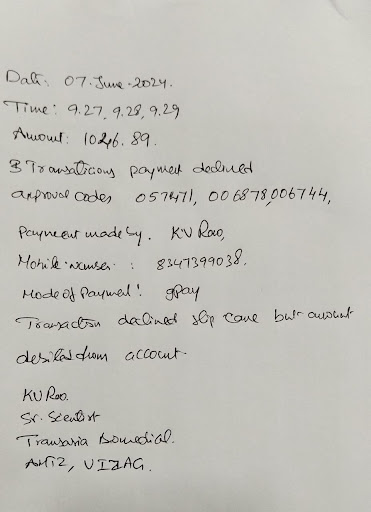 Date: 07.June.2024.
Time: 9.27, 9.28, 9.29
Amount: 1026.89.
3 Transations payment declined
approval codes 057471, 006878, 006744,
Payment made by. KV Rao,
Mobile number : 8347399038.
Mode of Payment: gpay
Transaction declined slip came but amount
debited from account.
KV Rao.
Sr. Scientist
Transasia Biomedial.
AMTZ, VIZAG.